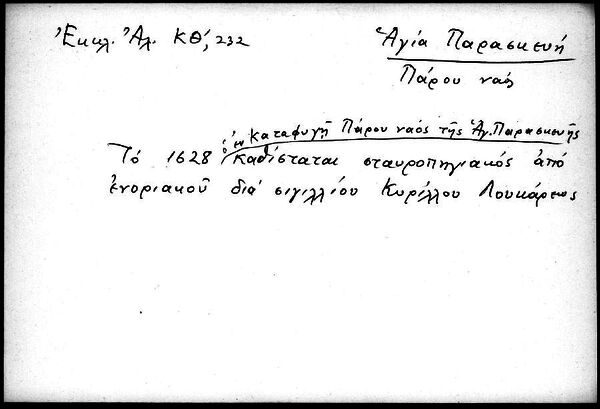 Ἐκκλ. Ἀλ. ΚΘ΄, 232
Ἁγία Παρασκευή
Πάρου ναός
ὁ ἐν Καταφυγῇ Πάρου ναός τῆς Ἁγ. Παρασκευῆς
Τό 1628 καθίσταται σταυροπηγιακός ἀπό
ἐνοριακοῦ διά σιγιλλίου Κυρίλλου Λουκάρεως